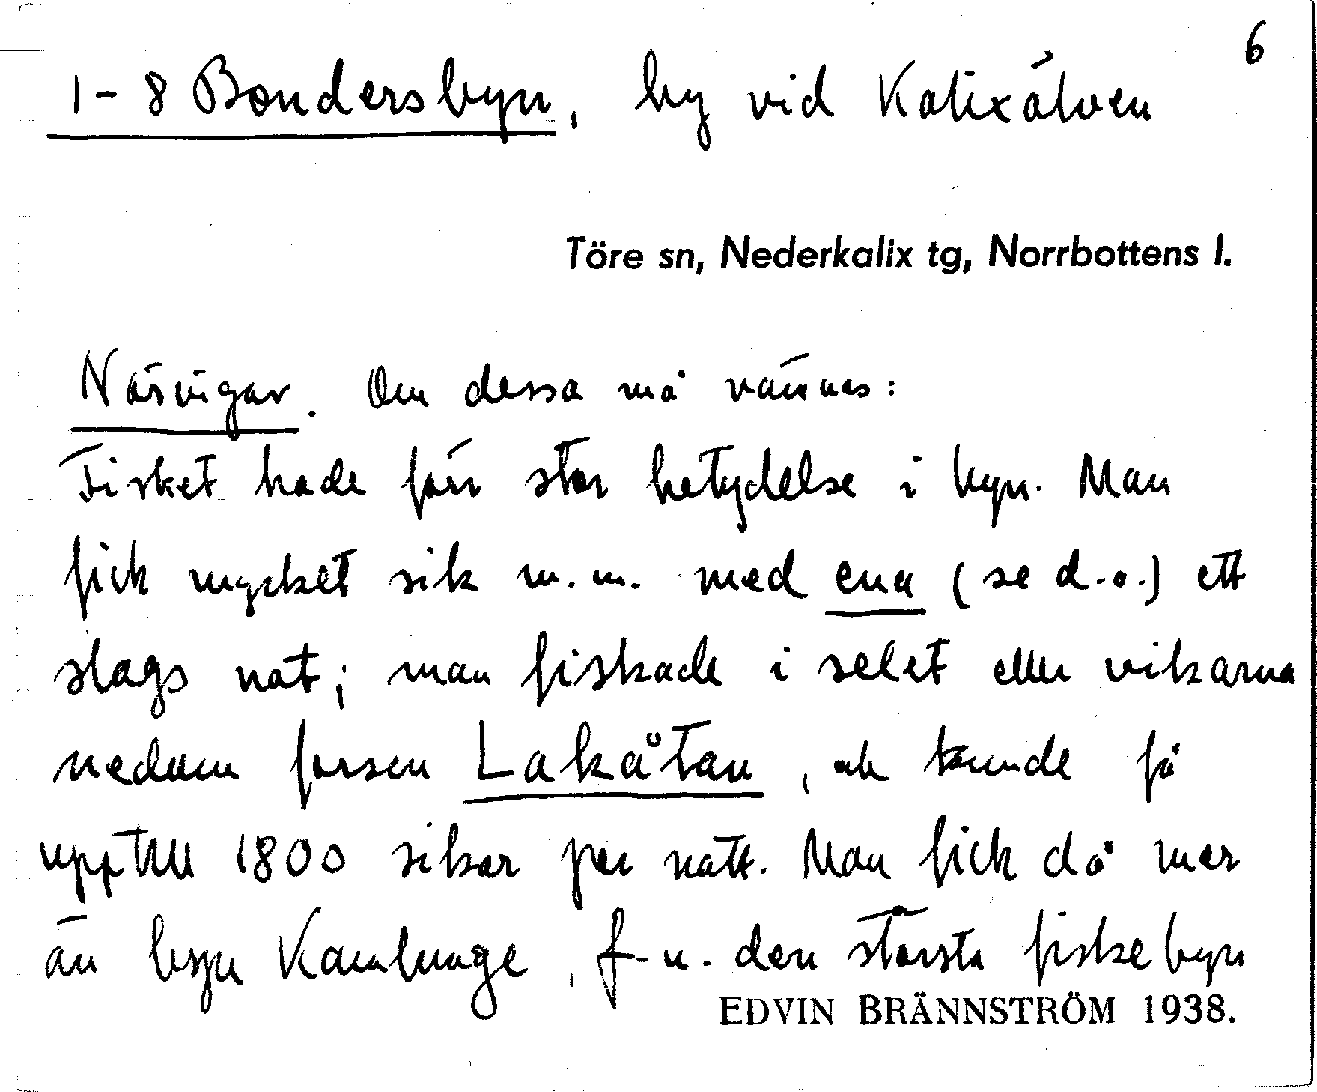 6
1-8 Bondersbyn, by vid Kalixälven
Töre sn, Nederkalix tg, Norrbottens l.
Näringar. Om dessa må nämnas:
Fisket hade förr stor betydelse i byn. Man
fick mycket sik m.m. med ena (se d.o.) ett
slags nät; man fiskade i selet eller vikarna
nedom forsen Lakåtan, och kunde få
upp till 1800 sikar per natt. Man fick då mer
än byn Kamlunge, f-n. den största fiskebyn
EDVIN BRÄNNSTRÖM 1938.